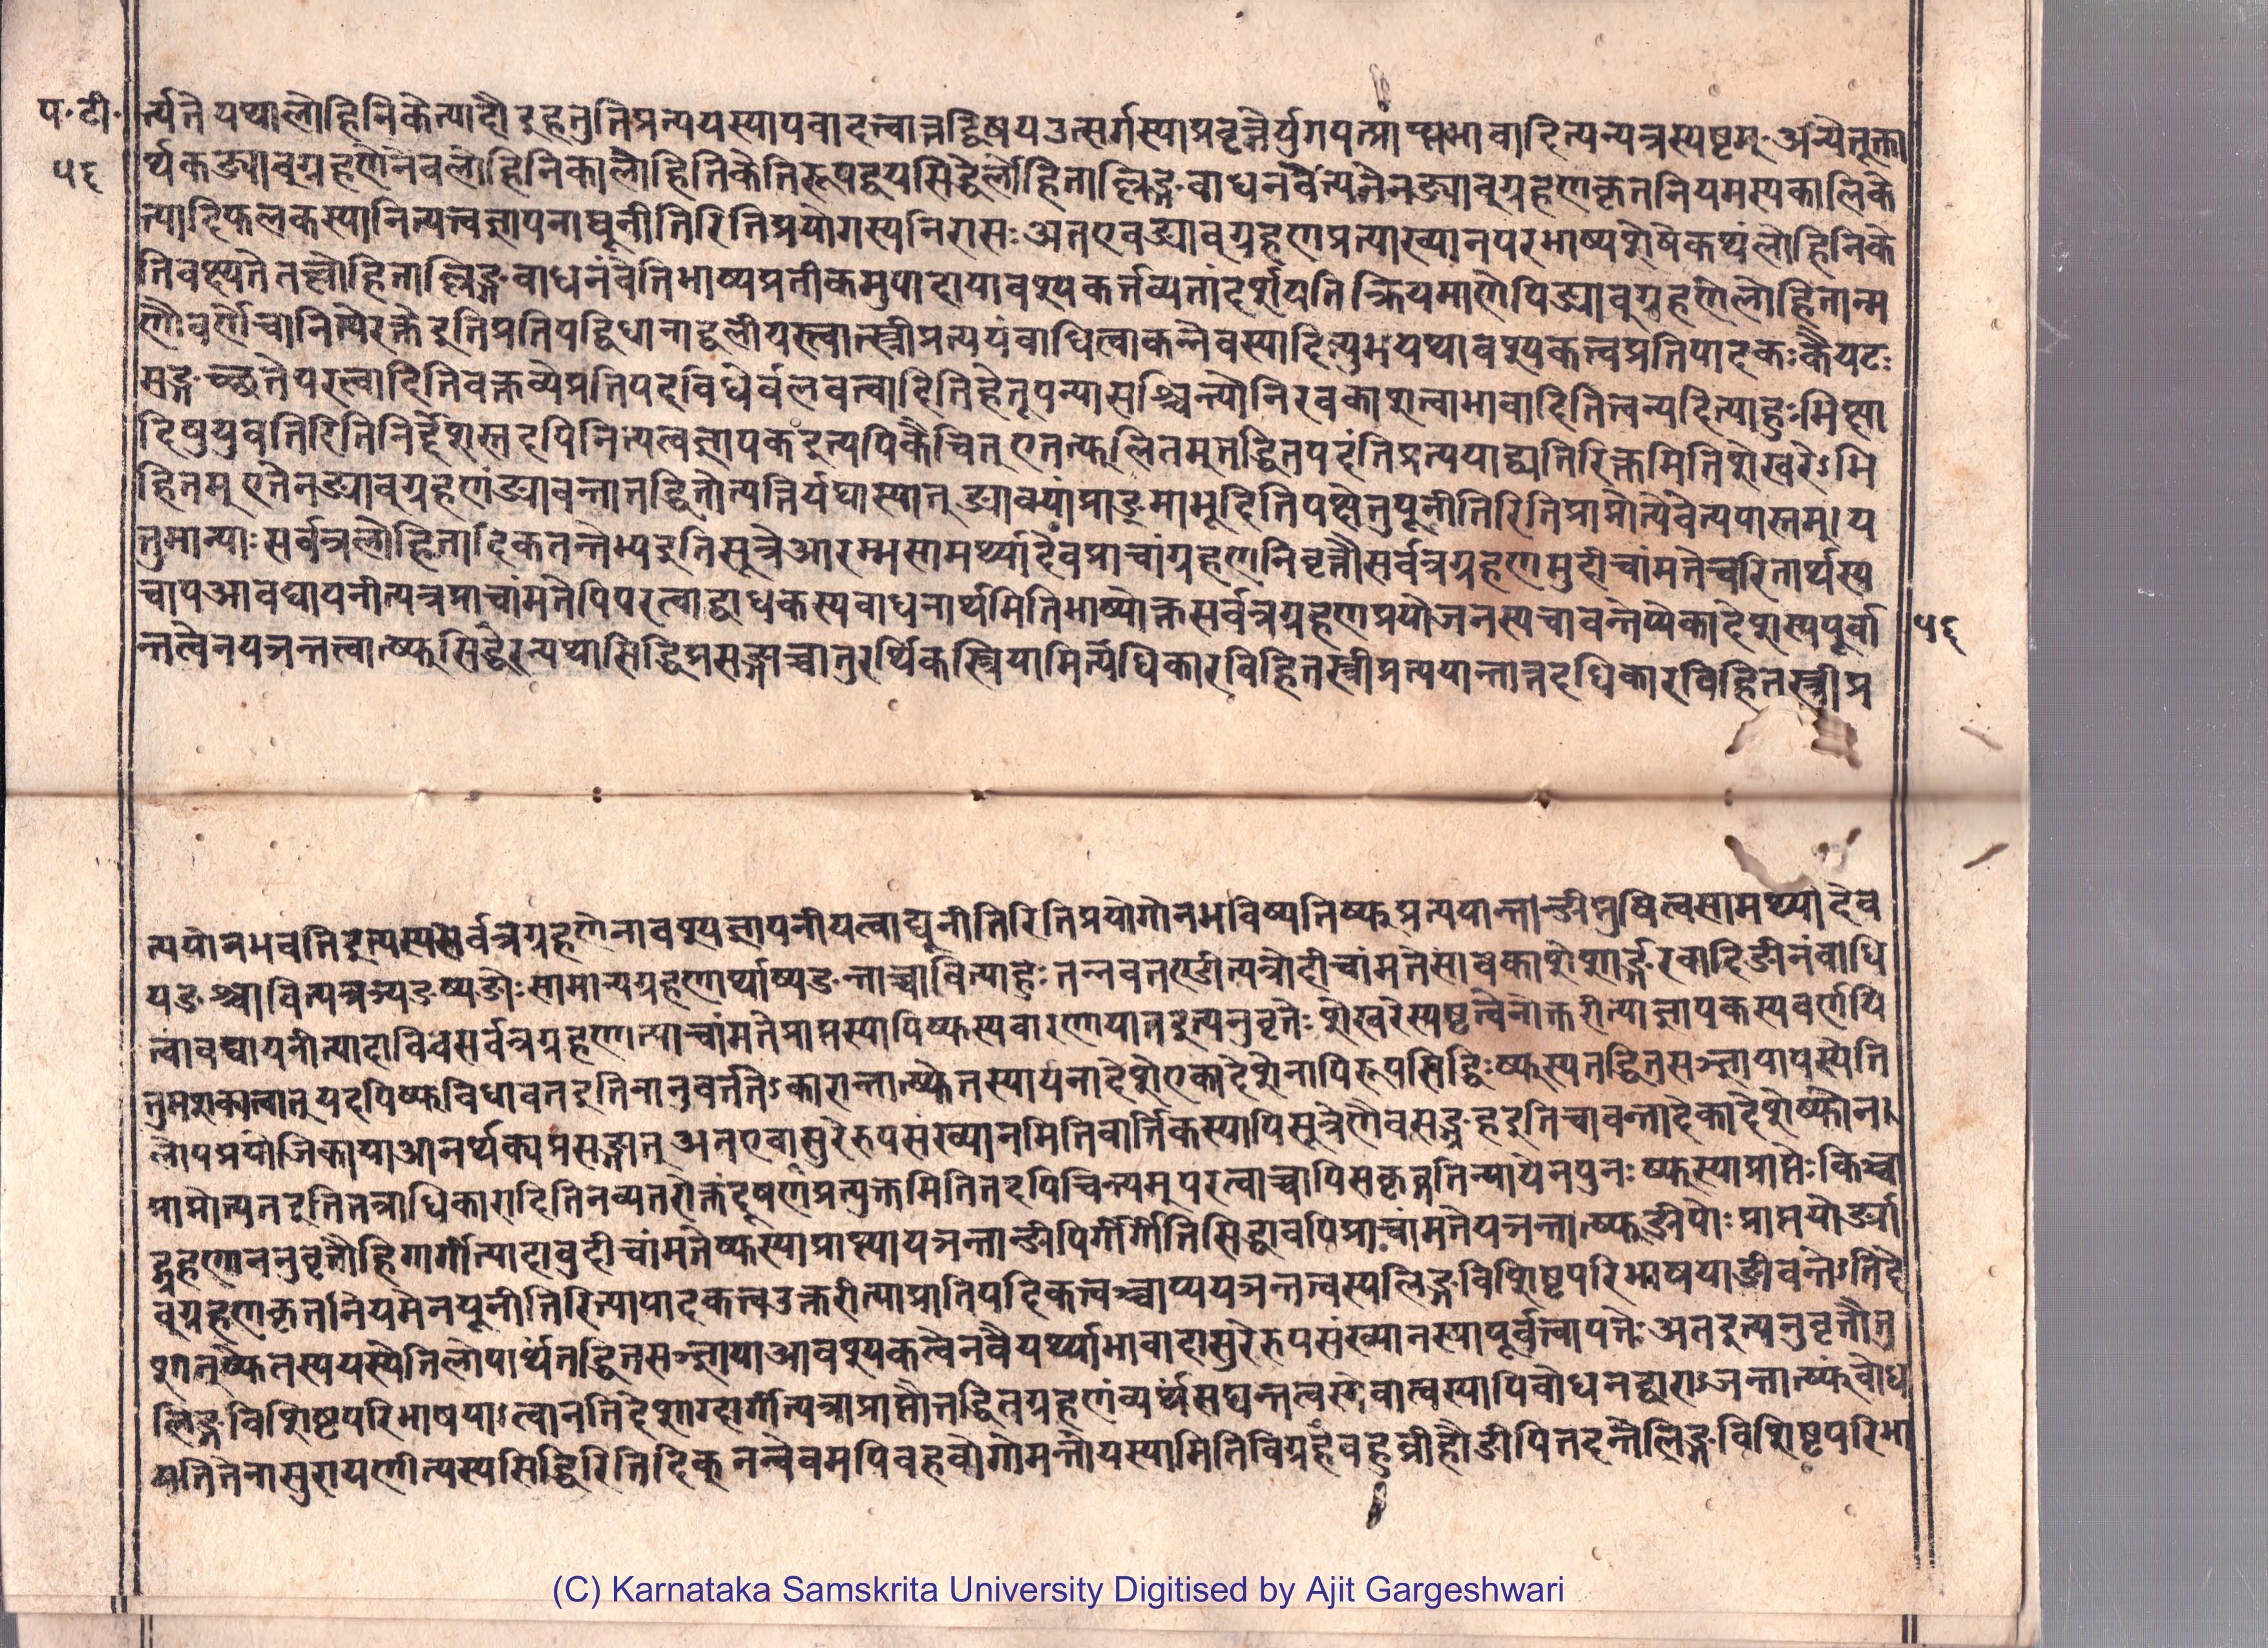 प॰टी॰
५६
र्त्यते यथालोहिनिकेत्यादौ इहतुतिप्रत्ययस्यापवादत्वात्तद्विषयउत्सर्गस्याप्रवृत्तेर्युगपत्प्राप्त्यभावादित्यन्यत्रस्पष्टम् अन्येतूक्ता
र्थकङ्याबुग्रहणेनैवलोहिनिकालोहितिकेतिरूपद्वयसिद्धेर्लोहिताल्लिङ्गबाधनंवेत्यनेनङ्याबुग्रहणकृतनियमस्यकालिके
त्यादिफलकस्यानित्यत्वज्ञापनाद्यूनीतिरितिप्रयोगस्यनिरासः अतएवङ्याबुग्रहणप्रत्याख्यानपरभाष्यशेषेकथंलोहिनिके
तिवक्ष्यतेतल्लोहिताल्लिङ्गबाधनंवेतिभाष्यप्रतीकमुपादायावश्यकर्त्तव्यतांदर्शयतिक्रियमाणेपिङ्याबुग्रहणेलोहितान्म
णौवर्णेचानित्येरक्तेइतिप्रतिपद्विधानाद्बलीयस्त्वात्स्त्रीप्रत्ययंबाधित्वाकन्नेवस्यादित्युभयथावश्यकत्वप्रतिपादकःकैयटः
सङ्गच्छतेपरत्वादितिवक्तव्येप्रतिपदविधेर्बलवत्त्वादितिहेतूपन्यासश्चिन्त्योनिरवकाशत्वाभावादितित्वन्यदित्याहुःमिथ्या
दिषुयुवतिरितिनिर्द्देशस्तदपिनित्यत्वज्ञापकइत्यपिकेचित् एतत्फलितमुतद्धितपदंतिप्रत्ययाद्व्यतिरिक्तमितिशेखरेऽभि
हितम् एतेनङ्याबुग्रहणंङ्याबन्तात्तद्धितोत्पत्तिर्यथास्यात् ङ्याब्भ्यांप्राङ्माभूदितिपक्षेतुयूनीतिरितिप्राप्नोत्येवेत्यपास्तम्। य
तुमान्याःसर्वत्रलोहितादिकतन्तेभ्यइतिसूत्रेआरम्भसामर्थ्यादेवप्राचांग्रहणनिवृत्तौसर्वत्रग्रहणमुदीचांमतेचरितार्थस्य
चापआवट्यायनीत्यत्रप्राचांमतेपिपरत्वाद्बाधकस्यबाधनार्थमितिभाष्योक्तसर्वत्रग्रहणप्रयोजनस्यचाबन्तेप्येकादेशस्यपूर्वा
५६
न्तत्वेनयञन्तत्वात्ष्फसिद्धेरन्यथासिद्धिप्रसङ्गाच्चातुरर्थिकस्त्रियामित्यधिकारविहितस्त्रीप्रत्ययान्तात्तदधिकारविहितस्त्रीप्र
त्ययोनभवतिइत्यस्यसर्वत्रग्रहणेनावश्यज्ञापनीयत्वाद्यूनीतिरितिप्रयोगोनभविष्यतिष्फप्रत्ययान्तान्ङीष्तुषित्वसामर्थ्यादेव
यङश्चाबित्यत्रञ्यङ्ष्यङोःसामान्यग्रहणार्थाष्यङन्ताच्चाबित्याहुः तन्नवतण्डीत्यत्रोदीचांमतेसावकाशेशार्ङ्गरवादिङीनंबाधि
त्वावट्यायनीत्यादाविवसर्वत्रग्रहणात्प्राचांमतेप्राप्तस्यापिष्फस्यवारणायातइत्यनुवृत्तेः शेखरेस्पष्टत्वेनोक्तरीत्याज्ञापकस्यवर्णयि
तुमशक्यत्वात् यदपिष्फविधावतइतिनानुवर्त्ततेऽकारान्तात्ष्फेतस्यायनादेशेएकादेशेनापिरूपसिद्धिः ष्फस्यतद्धितसञ्ज्ञायायस्येति
लोपप्रयोजिकायाआनर्थक्यप्रसङ्गात् अतएवासुरेरुपसंख्यानमितिवार्त्तिकस्यापिसूत्रेणैवसङ्ग्रहइतिचाबन्तादेकादेशेष्फोन।
प्राप्नोत्यतइतितत्राधिकारादितिनव्यतरोक्तंदूषणंप्रत्युक्तमितितदपिचिन्त्यमुपरत्वाच्चापिसकृद्गतिन्यायेनपुनःष्फस्याप्राप्तेःकिञ्चा
द्ग्रहणाननुवृत्तौहिगार्गीत्यादावुदीचांमतेष्फस्याप्राप्त्यायञन्तान्ङीपिर्गार्गीतिसिद्धावपिप्राचांमतेयञन्तात्ष्फङीपोःप्राप्तयोर्ङ्या
बुग्रहणकृतनियमेनयूनीतिरित्यापादकत्वउक्तरीत्याप्रातिपदिकत्वञ्चाप्ययञन्तत्वस्यलिङ्गविशिष्टपरिभाषयाङीबन्तेऽतिदे
शात्तुष्फेतस्ययस्येतिलोपार्थंतद्धितसञ्ज्ञायाआवश्यकत्वेनवैयर्थ्याभावादासुरेरुपसंख्यानस्यापूर्वत्वापत्तेः अतइत्यनुवृत्तौतु
लिङ्गविशिष्टपरिभाषयाऽत्वानतिदेशाद्गार्गीत्यत्राप्राप्तौतद्धितग्रहणंव्यर्थंसद्यन्तत्वस्येवात्वस्यापिबोधनद्वाराऽञन्तात्ष्फंबोध
यतितेनासुरायणीत्यस्यसिद्धिरितिदिक् नन्वेवमपिबहवोगोमन्तोयस्यामितिविग्रहेबहुव्रीहौङीपितदन्तेलिङ्गविशिष्टपरिभा
(C) Karnataka Samskrita University Digitised by Ajit Gargeshwari